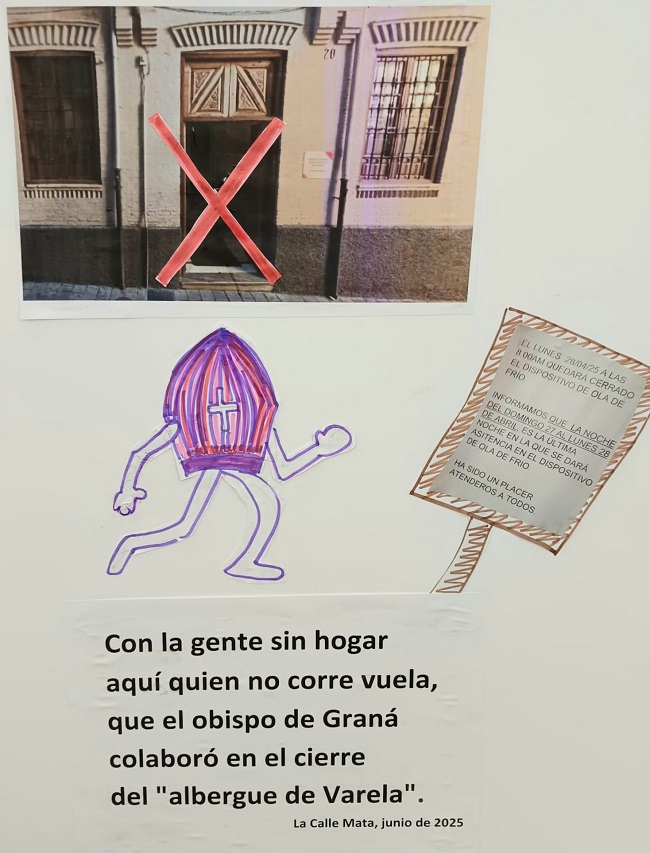 20
EL LUNES 28/04/25 A LAS
8:00AM QUEDARÁ CERRADO
EL DISPOSITIVO DE OLA DE
FRÍO
INFORMAMOS QUE LA NOCHE
DEL DOMINGO 27 AL LUNES 28
DE ABRIL, ES LA ÚLTIMA
NOCHE EN LA QUE SE DARÁ
ASITENCIA EN EL DISPOSITIVO
DE OLA DE FRIO
HA SIDO UN PLACER
ATENDEROS A TODOS.
Con la gente sin hogar
aquí quien no corre vuela,
que el obispo de Graná
colaboró en el cierre
del "albergue de Varela".
La Calle Mata, junio de 2025